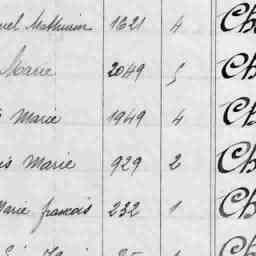 uel Mathurin 1621 4 Ch
Marie 2049 5 Ch
Marie 1949 4 Ch
is Marie 929 2 Ch
Marie francois 232 1 Ch